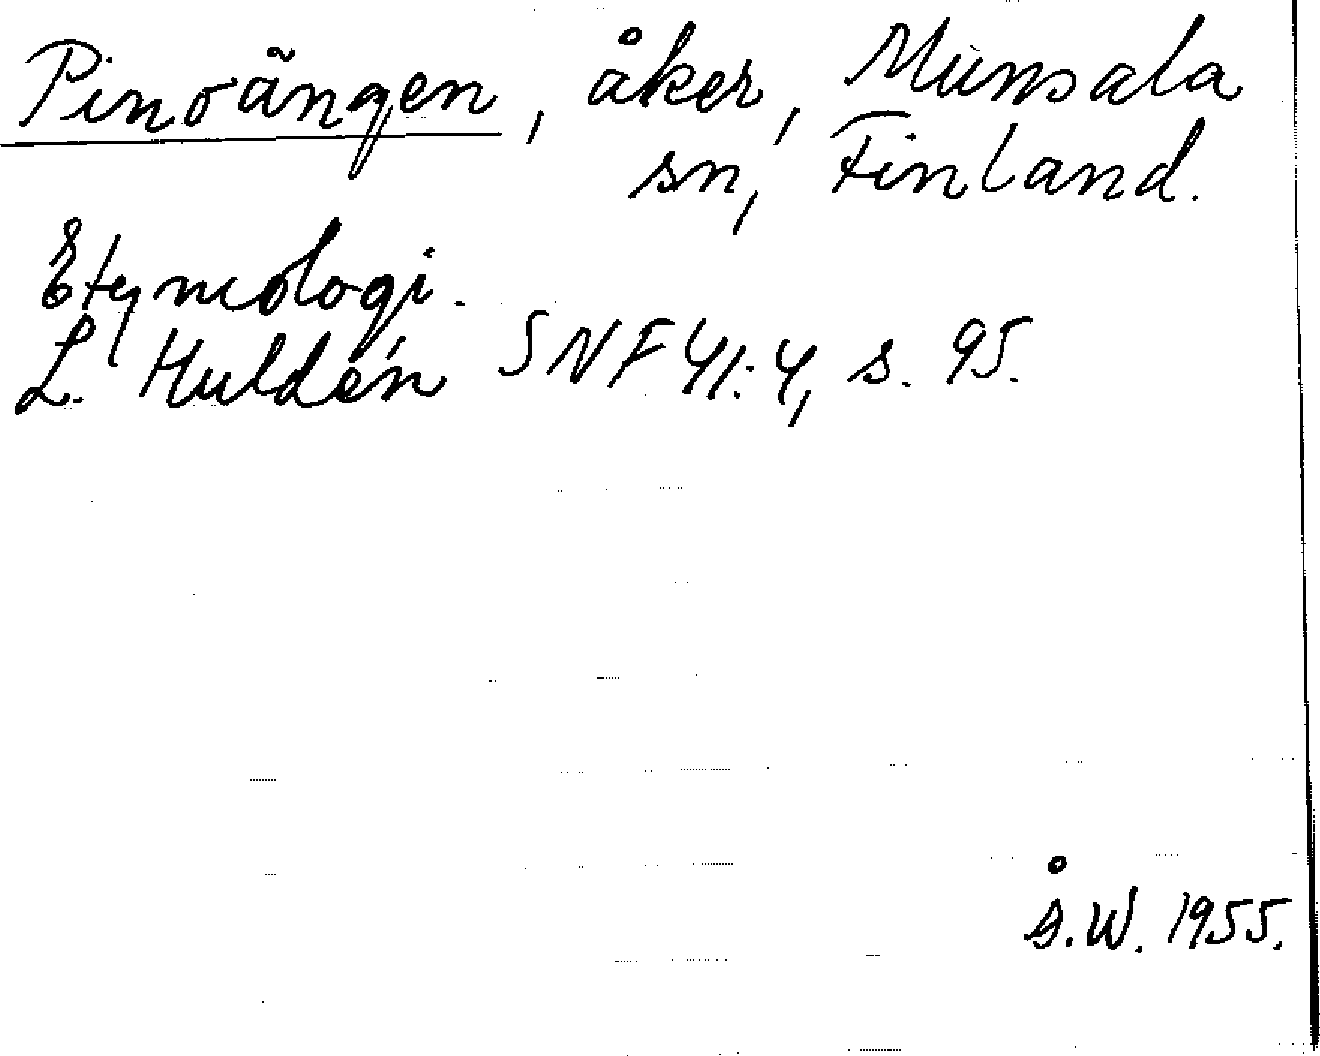 Pinoängen, åker, Munsala
sn, Finland.
Etymologi.
L. Huldén SNF 41:4, s. 95.
Å.W. 1955.